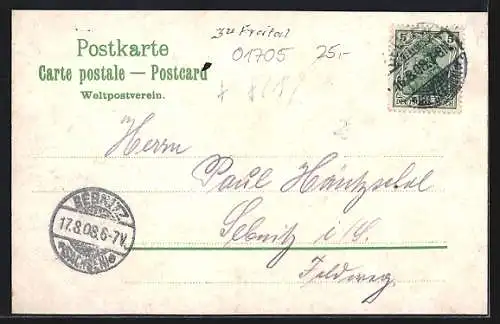 zu Freital
Postkarte
01705 25,-
Carte postale — Postcard
Weltpostverein.
5 5
Herrn
Paul Häntzschel
Sebnitz i/S.
Feldweg.
SEBNITZ
17.8.08.6-7V.
(SACHSEN)